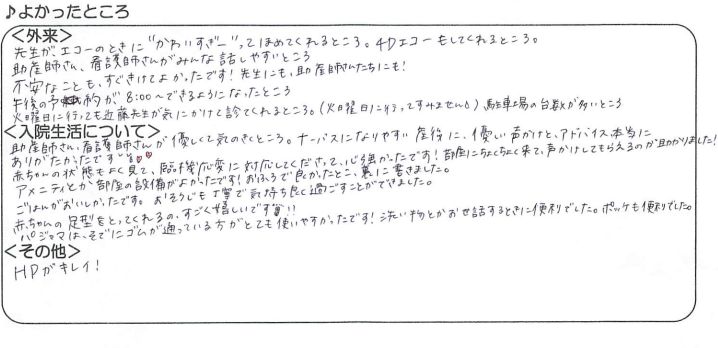 ♪よかったところ
＜外来＞
先生がエコーのときに"かわいすぎー"ってほめてくれるところ。4Dエコーもしてくれるところ。
助産師さん、看護師さんがみんな話しやすいところ
不安なことも、すぐきけてよかったです！先生にも、助産師さんたちにも！
午後の予約が8:00～できるようになったところ
火曜日に行っても近藤先生が気にかけて診てくれるところ。(火曜日に行ってすみません) 駐車場の台数が多いところ
＜入院生活について＞
助産師さん、看護師さんが優しくて気のきくところ。ナーバスになりやすい産後に、優しい声かけと、アドバイス本当に
ありがたかったです
赤ちゃんの状態もよく見て、臨機応変に対応してくださって、心強かったです！部屋にちょくちょく来て、声かけしてもらえるのが助かりました！
アメニティとか部屋の設備がよかったです！おふろで良かったとこ、裏に書きました。
ごはんがおいしかったです。おそうじも丁寧で気持ち良く過ごすことができました。
赤ちゃんの足型をとってくれるの、すごく嬉しいです!!
パジャマは、そでにゴムが通っている方がとても使いやすかったです！洗い物とかお世話するときに便利でした。ポッケも便利でした。
＜その他＞
HPがキレイ！